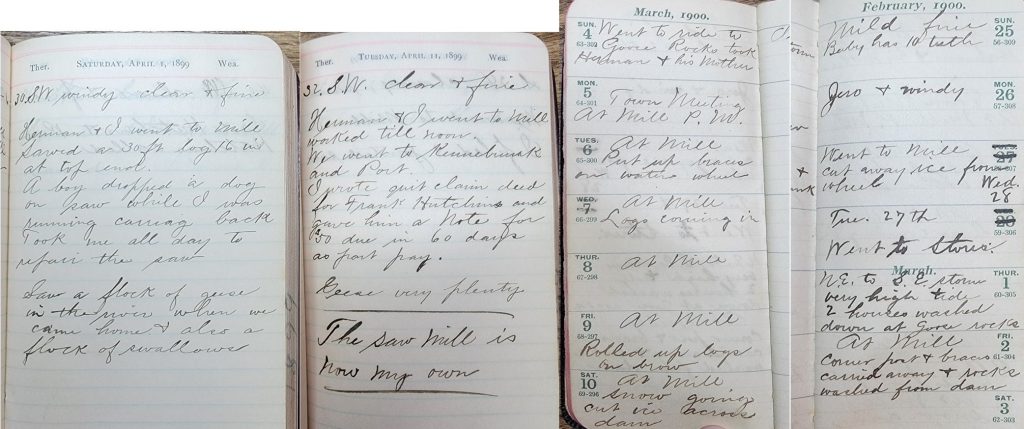 Ther. SATURDAY, APRIL 1, 1899 Wea.
30 S.W. windy clear & fine
Herman & I went to Mill
Sawed a 30 ft log 16 in
at top end.
A boy dropped a dog
on saw while I was
running carriag back
Took me all day to
repair the saw
Saw a flock of geese
in the river when we
came home & also a
flock of swallows
Ther. TUESDAY, APRIL 11, 1899 Wea.
32. S.W. clear & fine
Herman & I went to Mill
worked till noon.
We went to Kennebunk
and Port.
I wrote quit claim deed
for Frank Hutchins and
gave him a Note for
$50 due in 60 days
as part pay.
Geese very plenty
The Saw Mill is
now my own
March, 1900.
SUN. 4 63-302
Went to ride to
Goose Rocks took
Herman & his Mother
MON. 5 64-301
Town Meeting
At Mill P.M.
TUES. 6 65-300
At Mill
Put up braces
on water wheel
WED. 7 66-299
At Mill
Logs coming in
THUR. 8 67-298
At Mill
FRI. 9 68-297
At Mill
Rolled up logs
on brow
SAT. 10 69-296
At Mill
Snow going
cut ice across
dam
February, 1900.
SUN. 25 56-309
Mild fine
Baby has 10 teeth
MON. 26 57-308
Zero & windy
Went to Mill
cut away ice from
wheel
Wed. 28
Tue. 27th
28 59-306
Went to Stores.
March.
THUR. 1 60-305
N.E. to S.E. storm
very high tide
2 houses washed
down at Goose rocks
FRI. 2 61-304
At Mill
Corner post & braces
carried away & rocks
washed from dam
SAT. 3 62-303